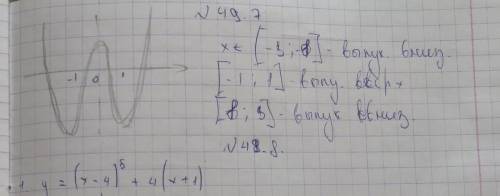 №49.7
x ∈ [-3; -1] - выпук. вниз.
[-1; 1] - выпу. вверх
[1; 3] - выпук вниз.
-1 0 1
№49.8.
y = (x-4)⁵ + 4(x+1)